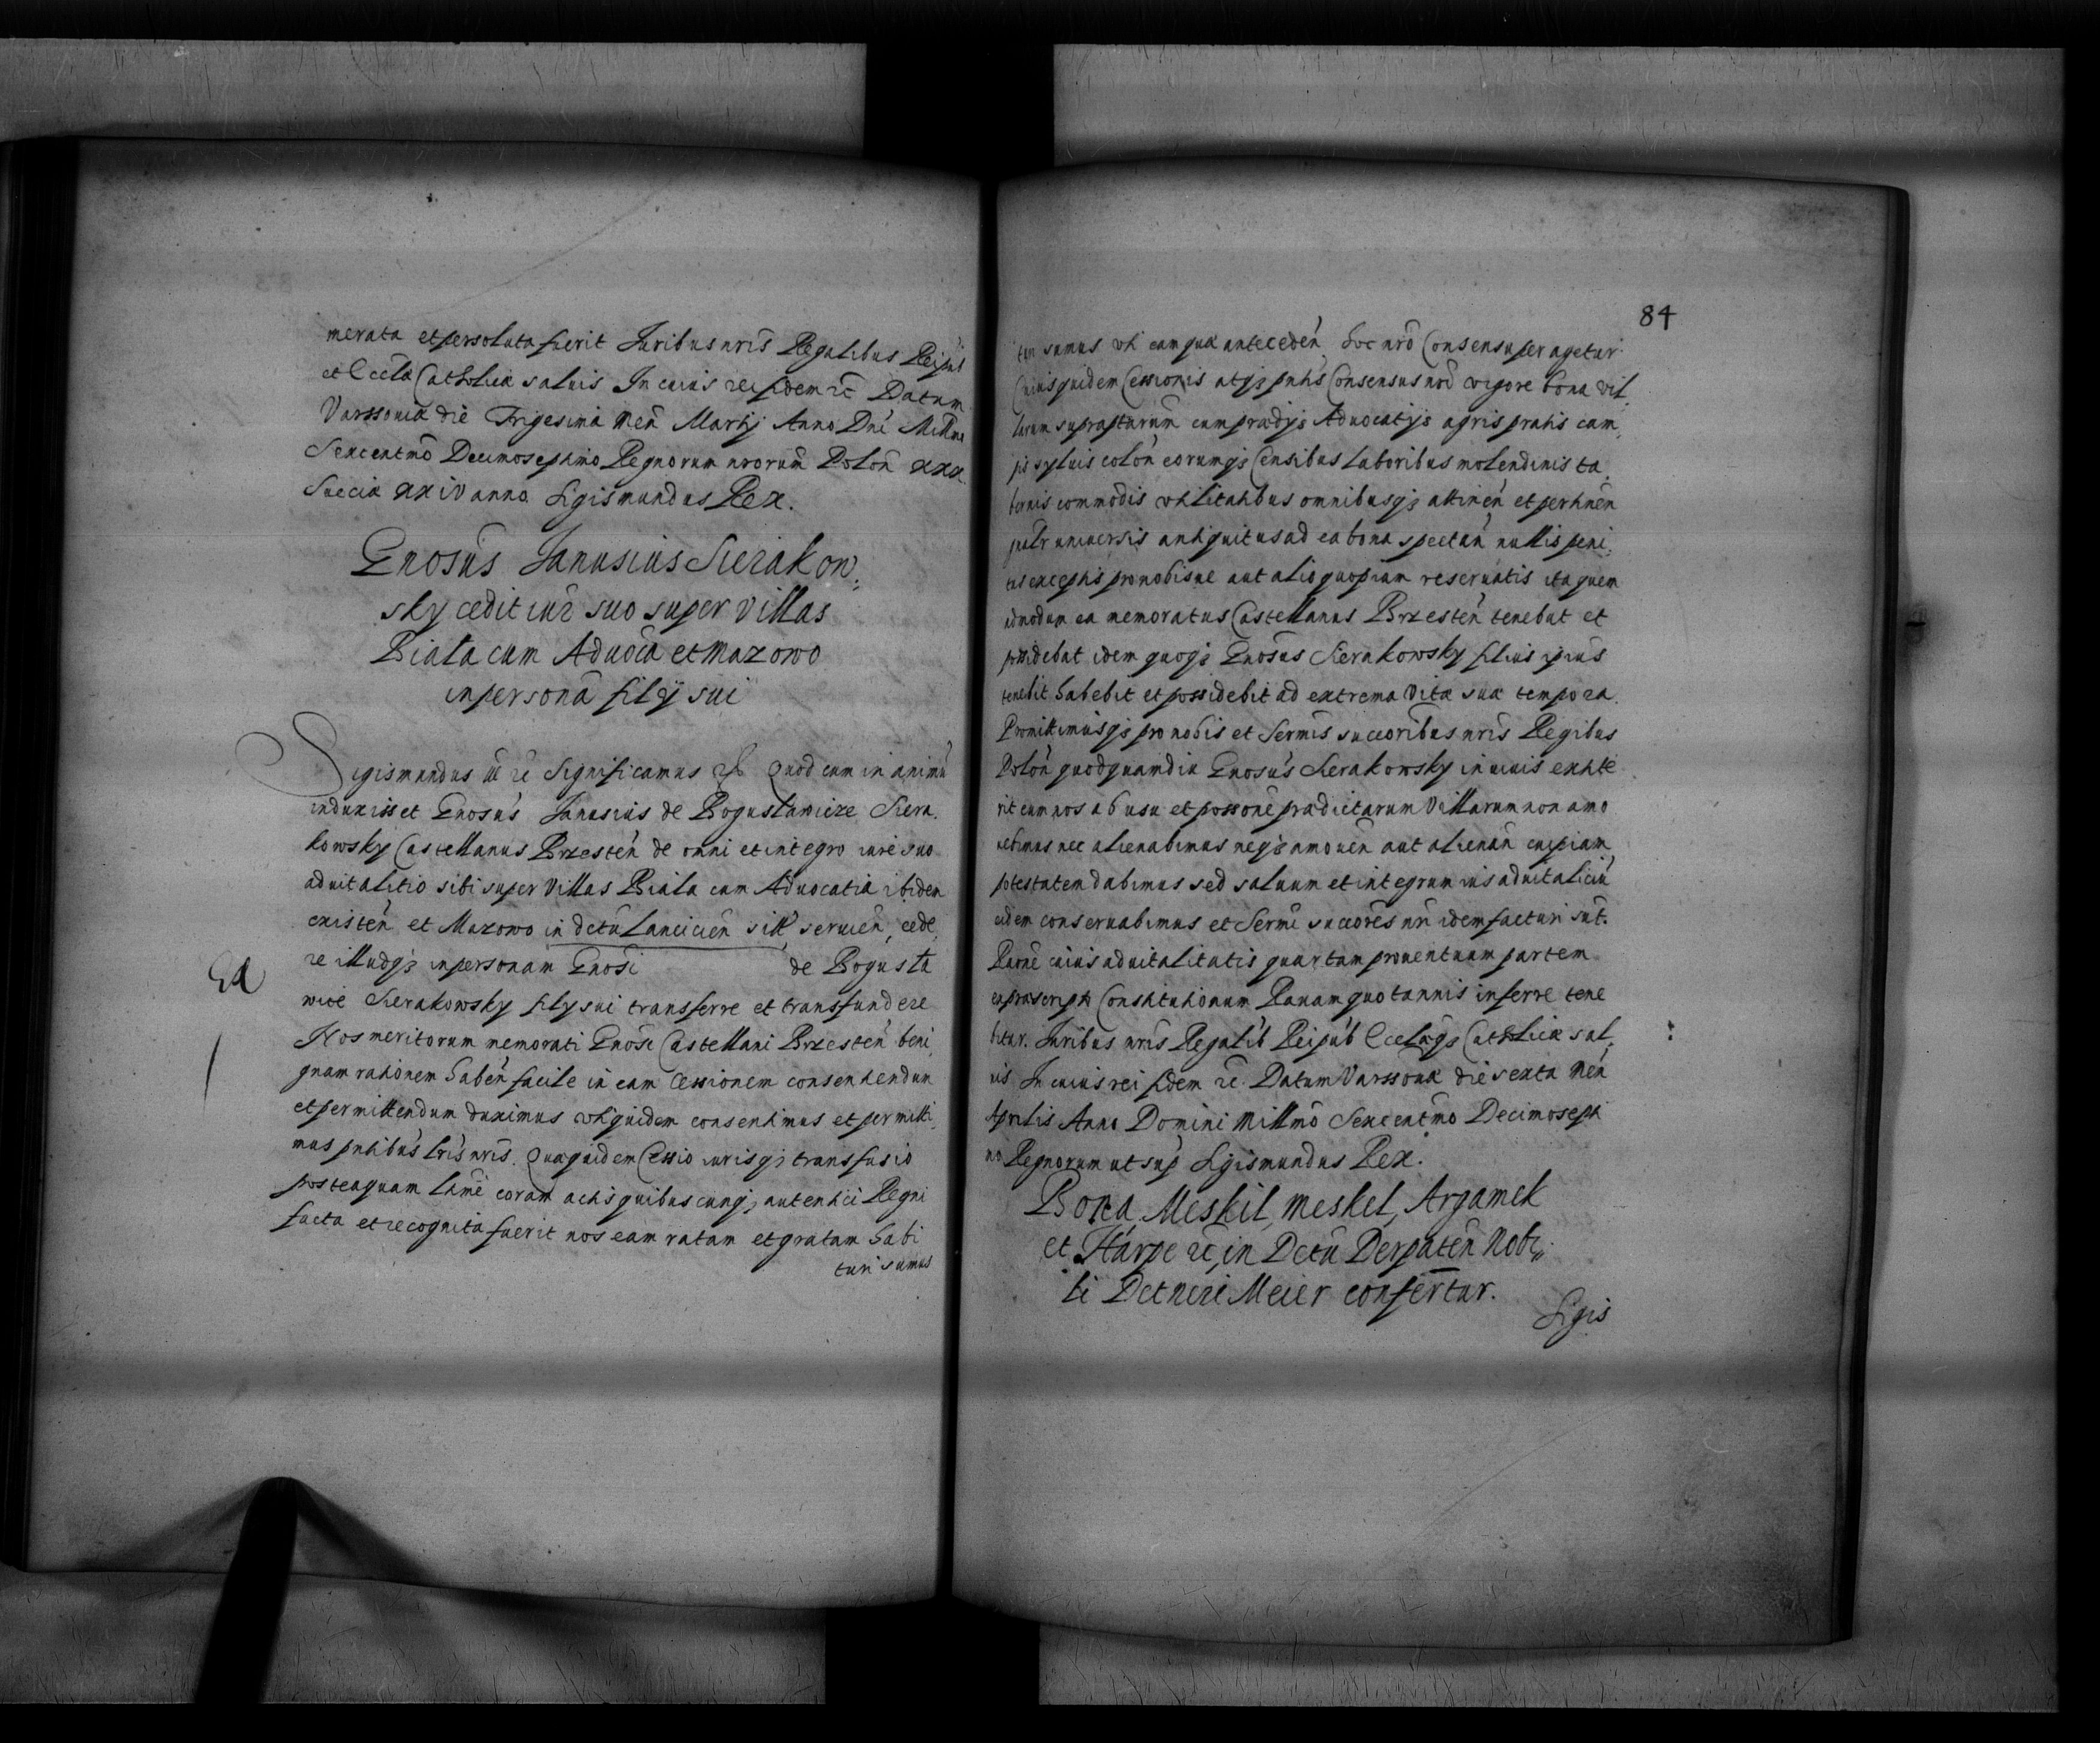 merata et persoluta fuerit Juribus nris Regalibus Reipub
et Eccla Catholica saluis In cuius rei fidem rc Datum
Varssouia die Trigesima Men Martij Anno Dni Millmo
Sexcentmo Decimoseptimo Regnorum nrorum Polon xxx
Suecia xxiv anno. Sigismundus Rex.
Gnosus Janusius Sierakow,
sky cedit iure suo super villas
Biala cum Aduoca et Mazowo
in persona filij sui
Sigismundus rc Significamus rc Quod cum in animu
induxisset Gnosus Janusius de Boguslawice Siera,
kowsky Castellanus Brzesten de omni et integro iure suo
aduitalitio sibi super villas Biala cum Aduocatia ibidem
existen et Mazowo in dctu Lancicien sitt seruien, cede,
re illudqz in personam Gnosi de Bogusla
Ed
wice Sierakowsky filij sui transferre et transfundere
Nos meritorum memorati Gnosi Castellani Brzesten beni,
gnam rationem haben facile in eam Cessionem consentiendum
et permittendum duximus uti quidem consentimus et permitti,
mus pntibus lris nris. Quaquidem Cessio iurisqz transfusio
posteaquam ltme coram actis quibuscunqz autenticis Regni
facta et recognita fuerit nos eam ratam et gratam habi
turi sumus
84
turi sumus uti eamqua anteceden hoc nro Consensu peragetur
Cuiusquidem Cessionis atqz pntis Consensus nri vigore bona vil,
larum suprasturum cum praedijs Aduocatijs agris pratis cam,
pis syluis colon eorumqz Censibus laboribus molendinis ta,
bernis commodis utilitatibus omnibusqz attinen et pertinen
pntr uniuersis antiquitus ad ea bona spectan nullis peni,
tus exceptis pro nobisue aut alio quopiam reseruatis ita quem
admodum ea memoratus Castellanus Brzesten tenebat et
possidebat idem quoqz Gnosus Sierakowsky filius ipsius
tenebit habebit et possidebit ad extrema vitae suae tempora.
Promittimusqz pro nobis et Sermis succoribus nris Regibus
Polon quod quamdiu Gnosus Sierakowsky in viuis extite
rit eum nos ab usu et possone praedictarum Villarum non amo
uebimus nec alienabimus neqz amouen aut alienan cuipiam
potestatem dabimus sed saluum et integrum ius aduitaliciu
eidem conseruabimus et Sermi succores nri idem facturi sut.
Raone cuius aduitalitatis quartam prouentuum partem
ex praescripto Constitutionum Rauam quotannis inferre tene
bitur. Juribus nris Regalib Reipub Ecclaqz Catholica sal,
uis In cuius rei fidem rc. Datum Varssouia die sexta Men
Aprilis Anno Domini Millmo Sexcentmo Decimosepti
mo Regnorum ut sup Sigismundus Rex.
Bona Meskil, Meskel, Argamek
et Harpe rc, in Dctu Derpaten Nobi,
li Detnere Meier confertur.
Sigis